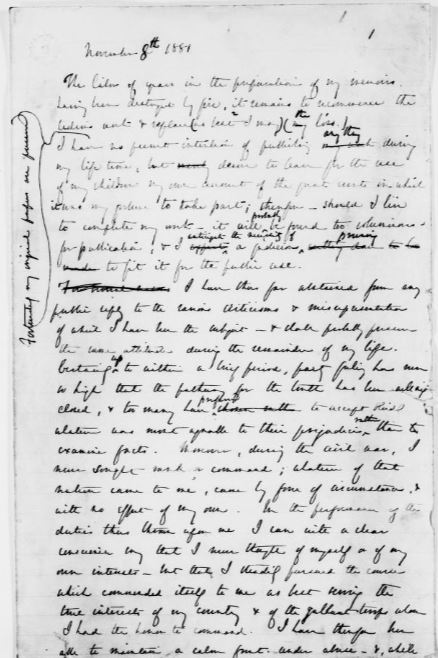 November 8th 1881
The labor of years in the preparation of my memoirs
having been destroyed by fire, it remains to recommence the
tedious work & replace (as best I may) the loss.
I have no present intention of publishing any thing during
my life time, but desire to leave for the use
of my children my own account of the great events in which
it was my fortune to take part; therefore should I live
to complete my work - it will probably be found too voluminous
for publication, & I intrust the a judicious pruning
to fit it for the public use.
I have thus far abstained from any
public reply to the various criticisms & misrepresentations
of which I have been the subject - & shall probably preserve
the same attitude during the remainder of my life.
Certainly up to within a brief period, party feeling has run
so high that the pathway for the truth has been well nigh
closed, & too many have preferred to accept blindly
whatever was most agreeable to their prejudices, rather than to
examine facts. Moreover, during the civil war, I
never sought rank or command; whatever of that
nature came to me, came by force of circumstances, &
with no effort of my own. In the performance of the
duties thus thrown upon me I can with a clear
conscience say that I never thought of myself or of my
own interests - but that I steadily pursued the course
which commended itself to me as best serving the
true interests of my country & of the gallant troops whom
I had the honor to command. I have therefore been
able to maintain a calm front under abuse - &, while
Fortunately my original papers are preserved